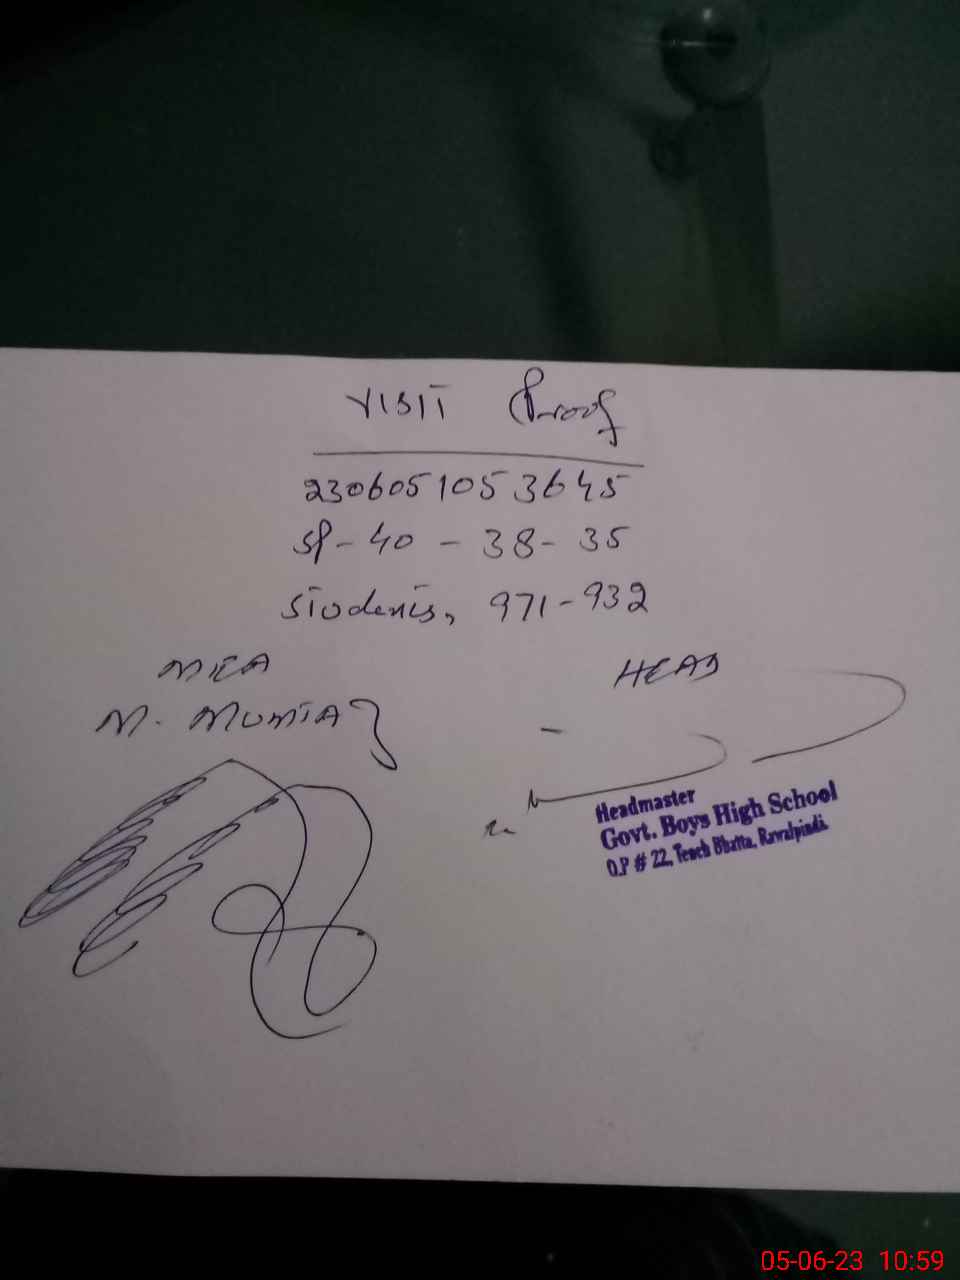 Visit Proof
2306051053645
SP-40-38-35
Students, 971-932
MEA
M. Mumtaz
HEAD
Headmaster
Govt. Boys High School
O.P # 22, Tench Bhatta, Rawalpindi.
05-06-23 10:59